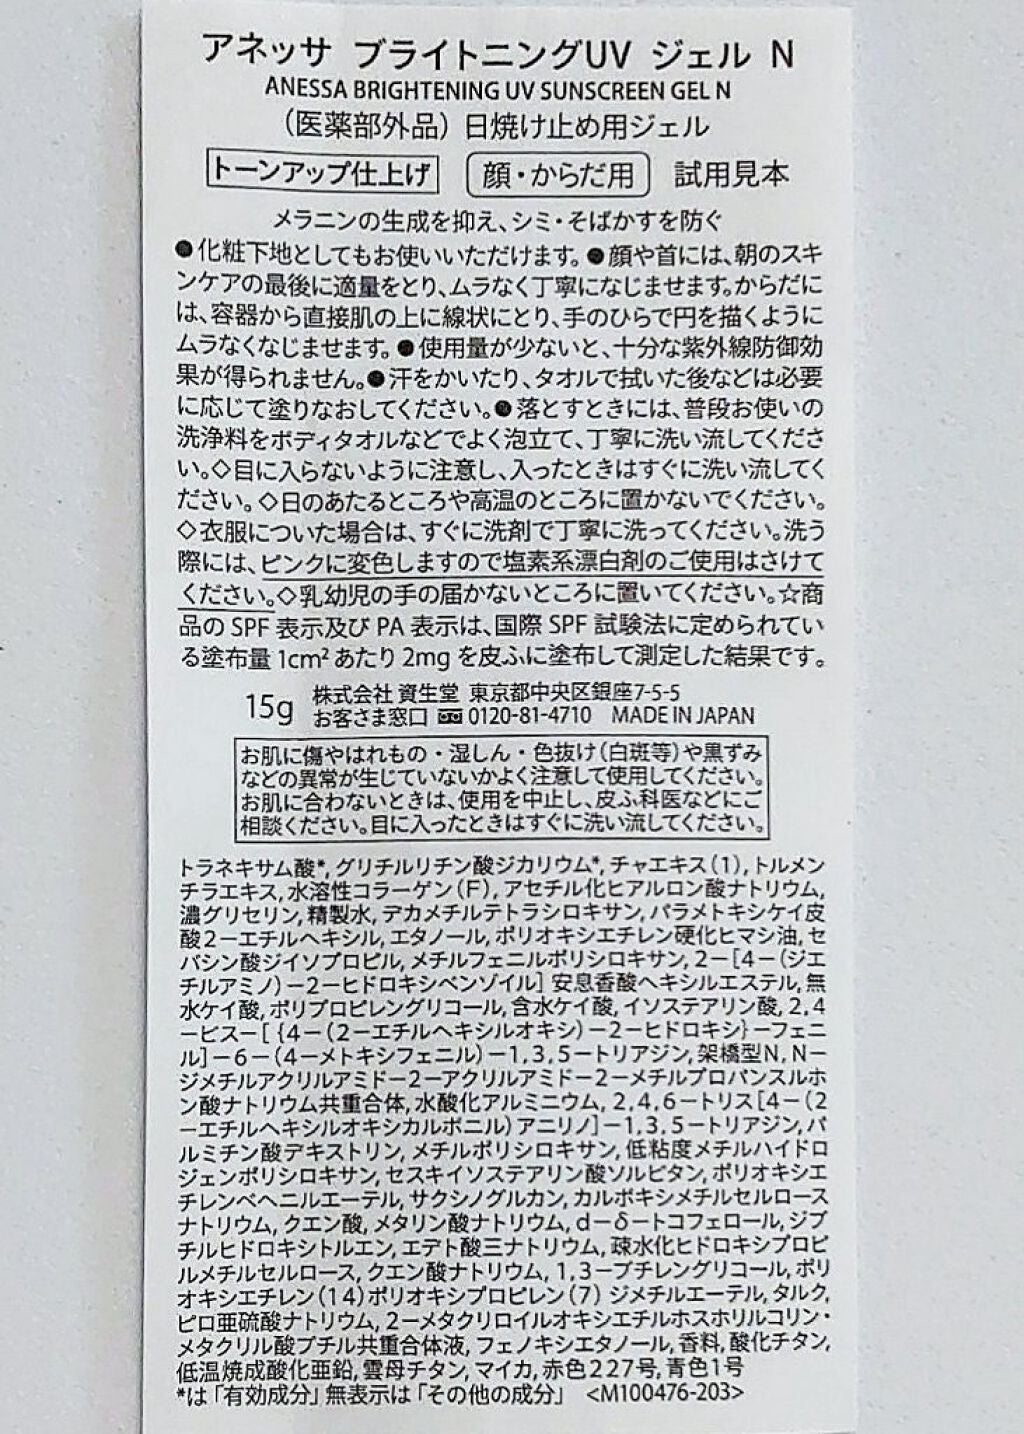 アネッサ ブライトニングUV ジェル N
ANESSA BRIGHTENING UV SUNSCREEN GEL N
（医薬部外品）日焼け止め用ジェル
トーンアップ仕上げ 顔・からだ用 試用見本
メラニンの生成を抑え、シミ・そばかすを防ぐ
●化粧下地としてもお使いいただけます。●顔や首には、朝のスキ
ンケアの最後に適量をとり、ムラなく丁寧になじませます。からだに
は、容器から直接肌の上に線状にとり、手のひらで円を描くように
ムラなくなじませます。●使用量が少ないと、十分な紫外線防御効
果が得られません。●汗をかいたり、タオルで拭いた後などは必要
に応じて塗りなおしてください。●落とすときには、普段お使いの
洗浄料をボディタオルなどでよく泡立て、丁寧に洗い流してくださ
い。◇目に入らないように注意し、入ったときはすぐに洗い流してく
ださい。◇日のあたるところや高温のところに置かないでください。
◇衣服についた場合は、すぐに洗剤で丁寧に洗ってください。洗う
際には、ピンクに変色しますので塩素系漂白剤のご使用はさけて
ください。◇乳幼児の手の届かないところに置いてください。☆商
品の SPF 表示及び PA 表示は、国際 SPF 試験法に定められてい
る塗布量 1cm² あたり 2mg を皮ふに塗布して測定した結果です。
15g 株式会社 資生堂 東京都中央区銀座7-5-5
お客さま窓口 0120-81-4710 MADE IN JAPAN
お肌に傷やはれもの・湿しん・色抜け（白斑等）や黒ずみ
などの異常が生じていないかよく注意して使用してください。
お肌に合わないときは、使用を中止し、皮ふ科医などにご
相談ください。目に入ったときはすぐに洗い流してください。
トラネキサム酸*, グリチルリチン酸ジカリウム*, チャエキス（1）, トルメン
チラエキス, 水溶性コラーゲン（F）, アセチル化ヒアルロン酸ナトリウム,
濃グリセリン, 精製水, デカメチルテトラシロキサン, パラメトキシケイ皮
酸2－エチルヘキシル, エタノール, ポリオキシエチレン硬化ヒマシ油, セ
バシン酸ジイソプロピル, メチルフェニルポリシロキサン, 2－［4－（ジエ
チルアミノ）－2－ヒドロキシベンゾイル］安息香酸ヘキシルエステル, 無
水ケイ酸, ポリプロピレングリコール, 含水ケイ酸, イソステアリン酸, 2,4
－ビス－［｛4－（2－エチルヘキシルオキシ）－2－ヒドロキシ｝－フェニ
ル］－6－（4－メトキシフェニル）－1,3,5－トリアジン, 架橋型N,N－
ジメチルアクリルアミド－2－アクリルアミド－2－メチルプロパンスルホ
ン酸ナトリウム共重合体, 水酸化アルミニウム, 2,4,6－トリス［4－（2
－エチルヘキシルオキシカルボニル）アニリノ］－1,3,5－トリアジン, パ
ルミチン酸デキストリン, メチルポリシロキサン, 低粘度メチルハイドロ
ジェンポリシロキサン, セスキイソステアリン酸ソルビタン, ポリオキシエ
チレンベヘニルエーテル, サクシノグルカン, カルボキシメチルセルロース
ナトリウム, クエン酸, メタリン酸ナトリウム, d－δ－トコフェロール, ジブ
チルヒドロキシトルエン, エデト酸三ナトリウム, 疎水化ヒドロキシプロピ
ルメチルセルロース, クエン酸ナトリウム, 1,3－ブチレングリコール, ポリ
オキシエチレン（14）ポリオキシプロピレン（7）ジメチルエーテル, タルク,
ピロ亜硫酸ナトリウム, 2－メタクリロイルオキシエチルホスホリルコリン・
メタクリル酸ブチル共重合体液, フェノキシエタノール, 香料, 酸化チタン,
低温焼成酸化亜鉛, 雲母チタン, マイカ, 赤色227号, 青色1号
*は「有効成分」無表示は「その他の成分」 <M100476-203>